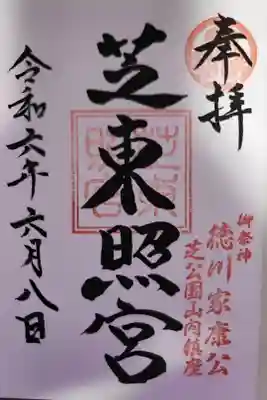 奉拝
御祭神
徳川家康公
芝公園山内鎮座
芝東照宮
芝東照宮
令和六年六月八日